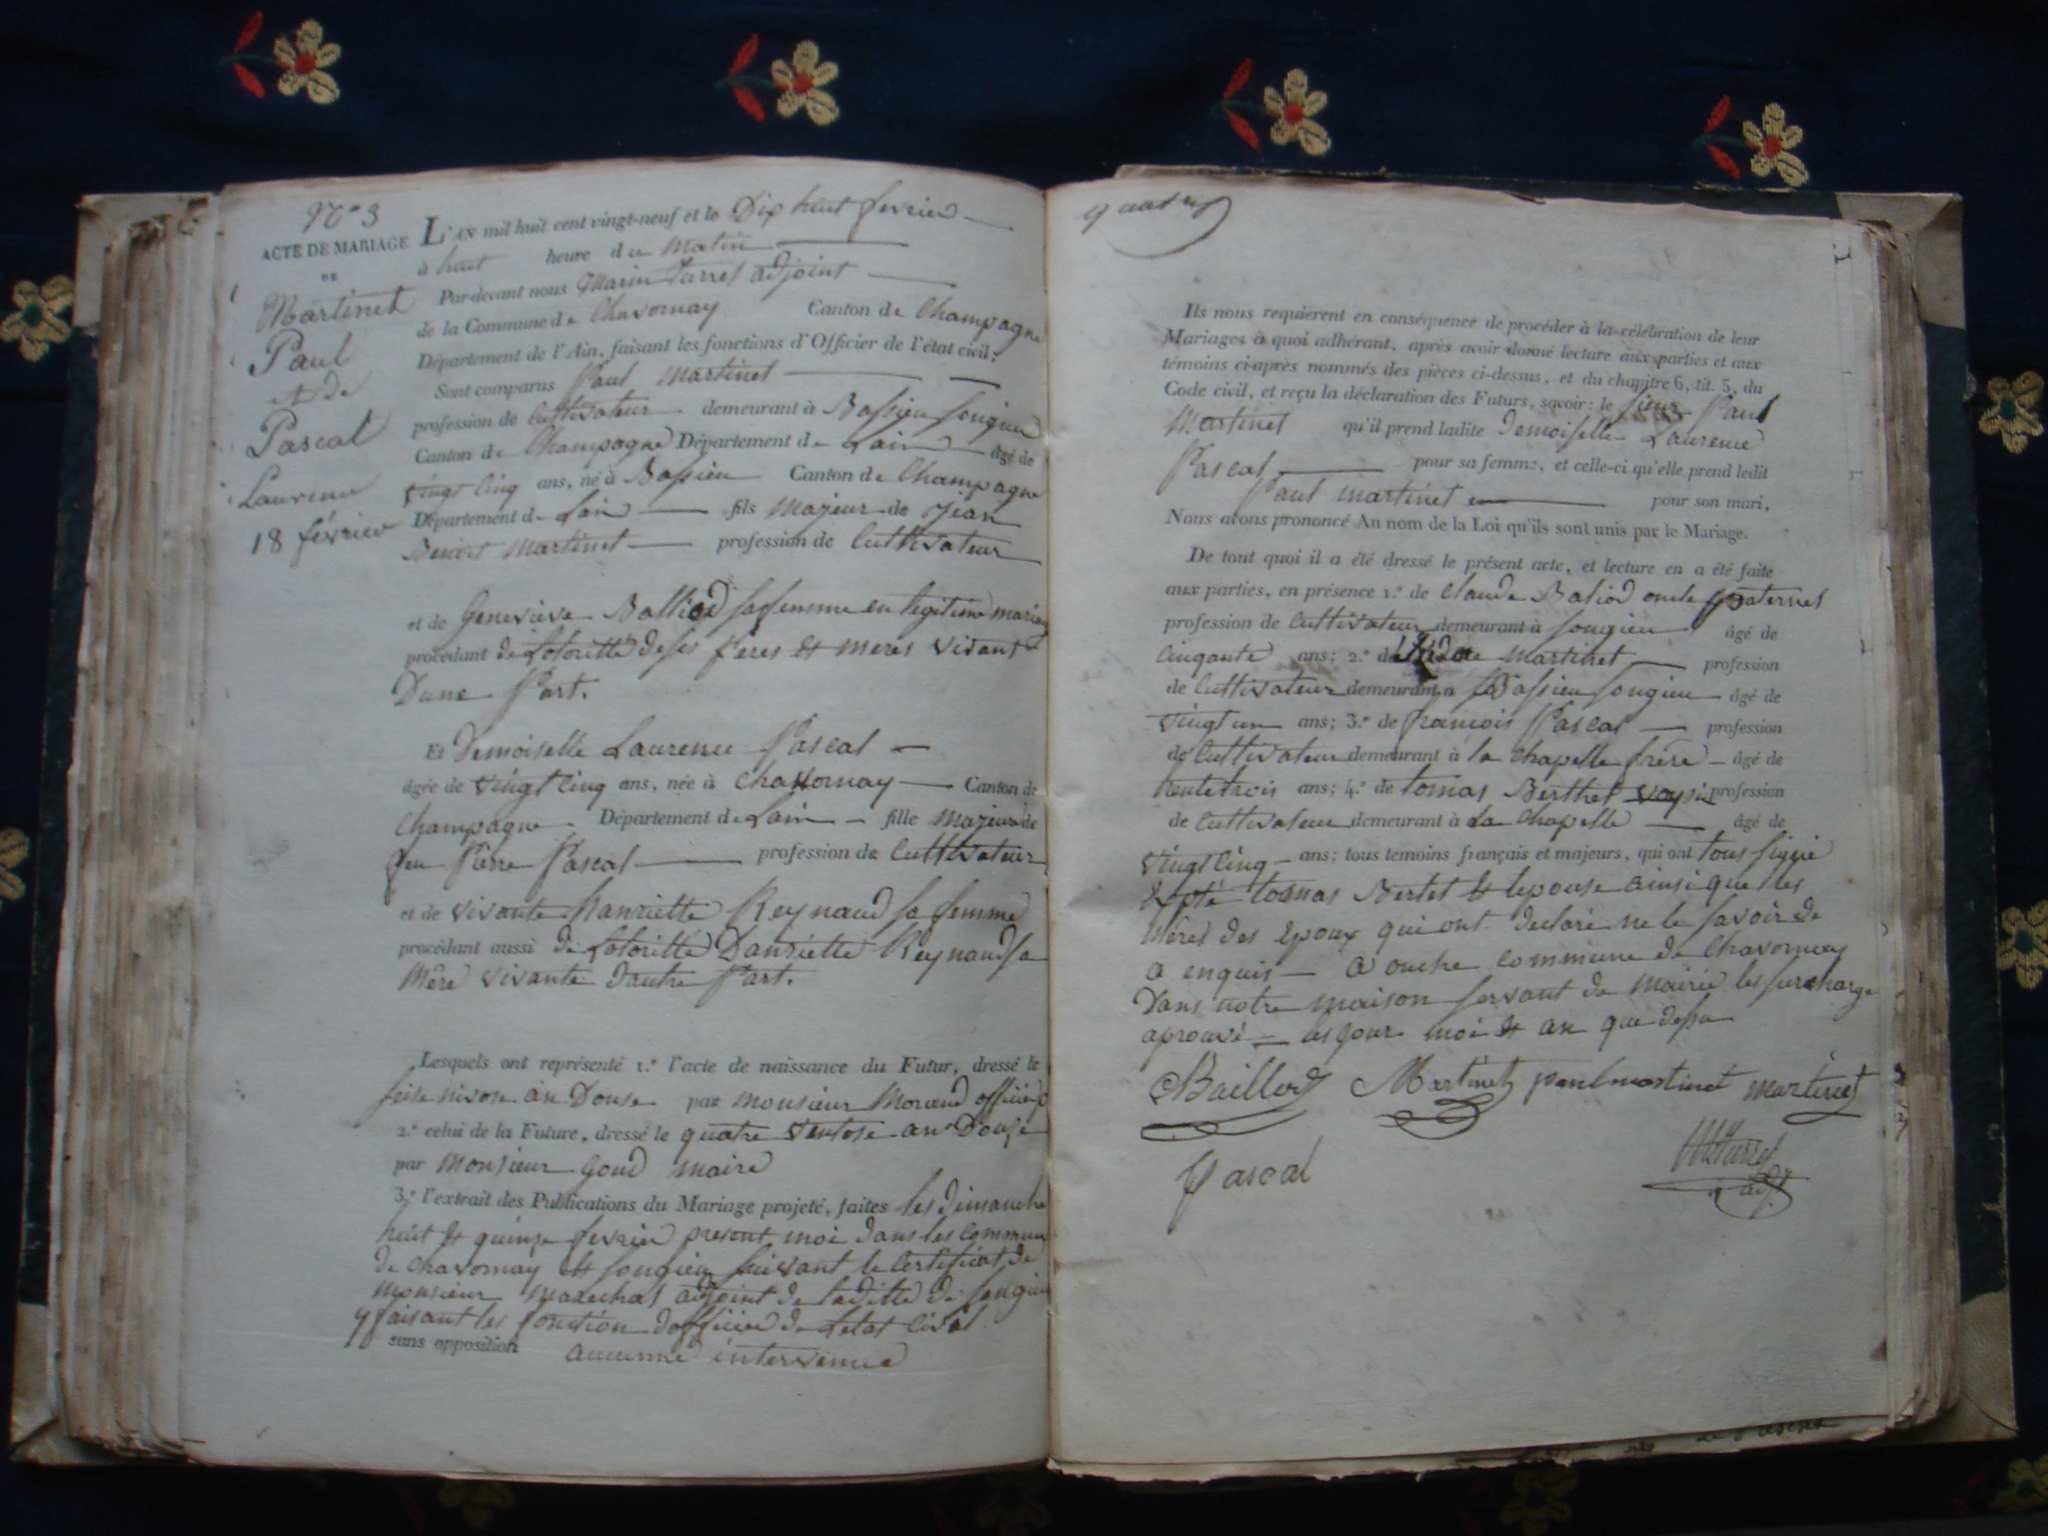 N° 3
ACTE DE MARIAGE
DE
Martinet
Paul
et de
Pascal
Laurence
18 février
L'AN mil huit cent vingt-neuf et le Dix huit fevrier
à huit heure du Matin
Par-devant nous Marin Jarrel adjoint
de la Commune de Chavornay Canton de Champagne
Département de l'Ain, faisant les fonctions d'Officier de l'état civil;
Sont comparus Paul Martinet
profession de Cultivateur demeurant à Bassieu Songieu
Canton de Champagne Département de Lain âgé de
vingt cinq ans, né à Bassieu Canton de Champagne
Département de Lain fils Majeur de Jean
Benoit Martinet profession de Cultivateur
et de Geneviève Balliod sa femme en legitime mariag
procédant de Lotoritté de ses Peres et meres vivant
Dune Part.
Et Demoiselle Laurence Pascal
âgée de vingt cinq ans, née à Chavornay Canton de
Champagne Département de Lain fille Majeur de
feu Pierre Pascal profession de Cultivateur
et de vivante hanriette Reynaud sa femme
procédant aussi de Lotoritté Danriette Reynaud sa
Mère vivante dautre Part.
Lesquels ont représenté 1.° l'acte de naissance du Futur, dressé le
seise nivose an Douse par Monsieur Morand officier
2.° celui de la Future, dressé le quatre ventose an Douse
par Monsieur Goud maire
3.° l'extrait des Publications du Mariage projeté, faites les dimanche
huit et quinse fevrier present moi dans les commune
de Chavornay et Songieu suivant le Certificat de
Monsieur Marechal adjoint de laditte de Songieu
y faisant les fonction dofficier de Letat Civil
sans opposition aucunne intervenue
quatre
Ils nous requièrent en conséquence de procéder à la célébration de leur
Mariage; à quoi adhérant, après avoir donné lecture aux parties et aux
témoins ci-après nommés des pièces ci-dessus, et du chapitre 6, tit. 5, du
Code civil, et reçu la déclaration des Futurs, savoir: le sieur Paul
Martinet qu'il prend ladite Demoiselle Laurence
Pascal pour sa femme, et celle-ci qu'elle prend ledit
Paul Martinet pour son mari,
Nous avons prononcé Au nom de la Loi qu'ils sont unis par le Mariage.
De tout quoi il a été dressé le présent acte, et lecture en a été faite
aux parties, en présence 1.° de Claude Baliod oncle paternel
profession de Cultivateur demeurant à Songieu âgé de
Cinqante ans; 2.° de Martinet profession
de Cultivateur demeurant à Bassieu Songieu âgé de
vingt un ans; 3.° de francois Pascal profession
de Cultivateur demeurant à la Chapelle frère âgé de
trente trois ans; 4.° de tomas Berthet voysin profession
de Cultivateur demeurant à La Chapelle âgé de
vingt cinq ans; tous témoins français et majeurs, qui ont tous signé
Epté tomas Bertet et lepouse ainsi que les
Mères des epoux qui ont declaré ne le savoir de
a enquis a ouche commune de Chavornay
Dans notre maison servant de Mairie les surcharge
aprouvé les jour moi et an que dessu
Bailliod Martinet paul martinet martinet
Pascal
M Jarrel
adj.